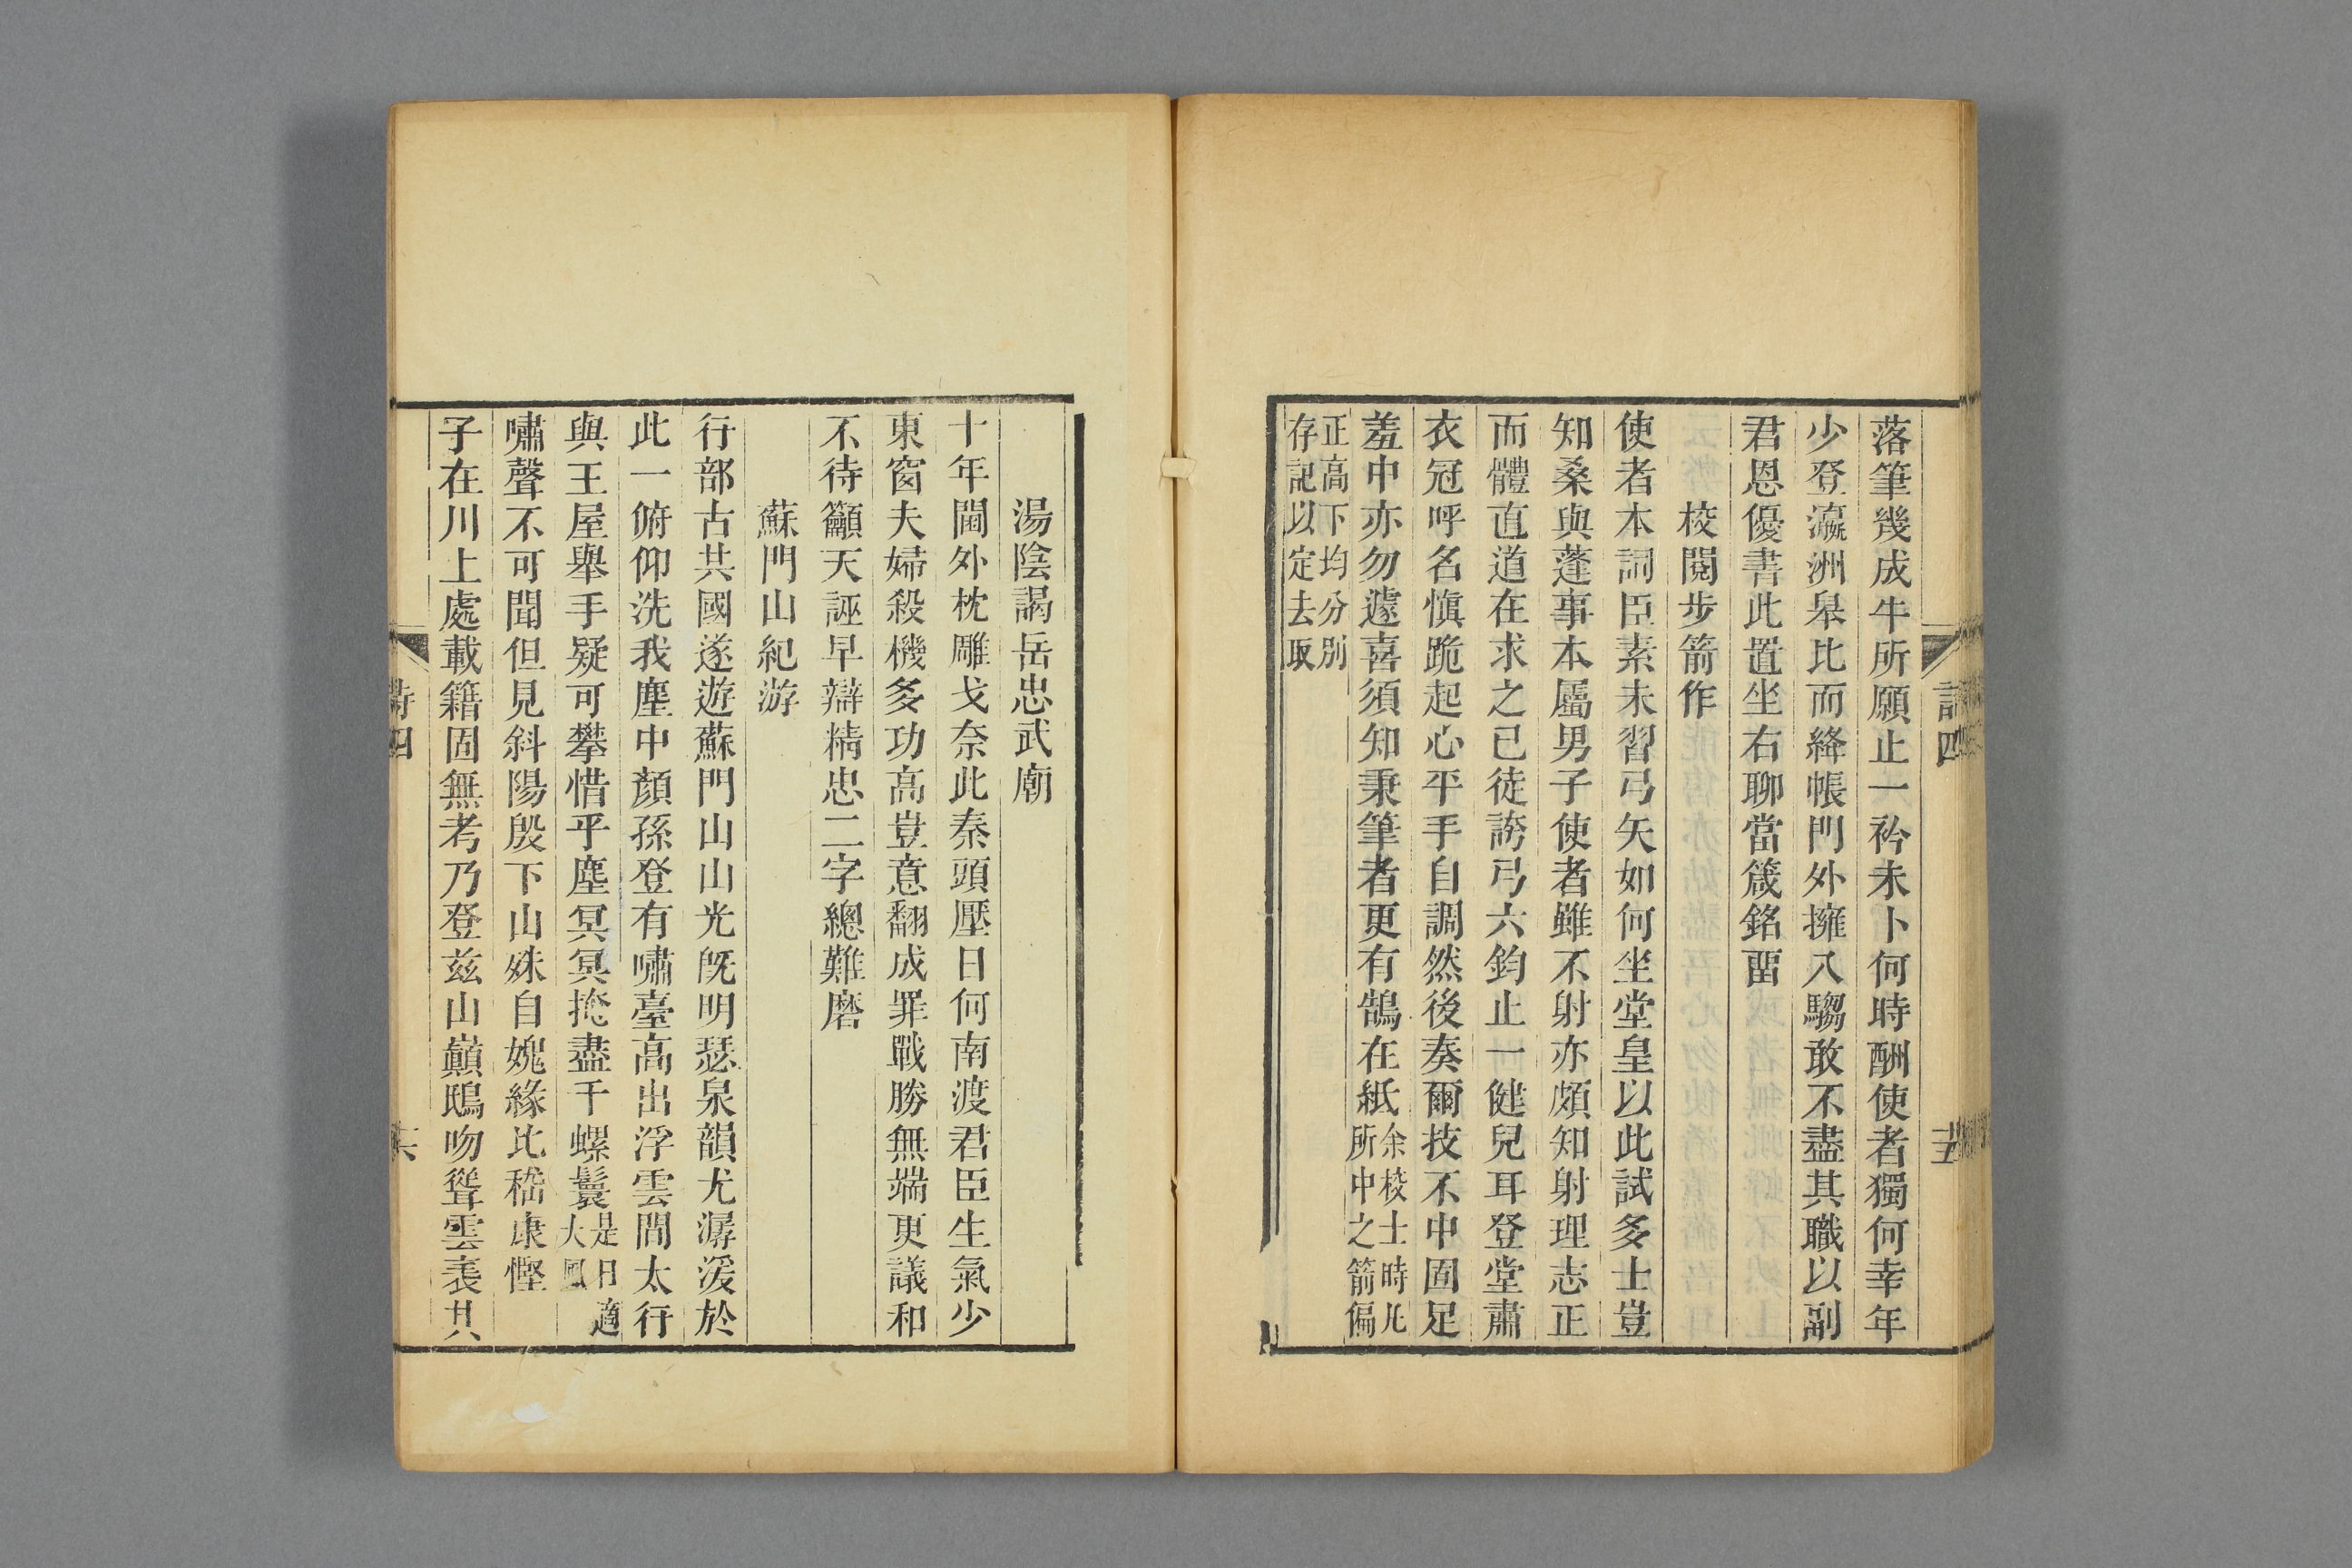 詩四
十五
落筆幾成牛所願止一衿未卜何時酬使者獨何幸年
少登瀛洲皋比而絳帳門外擁八騶敢不盡其職以副
君恩優書此置坐右聊當箴銘畱
校閱步箭作
使者本詞臣素未習弓矢如何坐堂皇以此試多士豈
知桑與蓬事本屬男子使者雖不射亦頗知射理志正
而體直道在求之己徒誇弓六鈞止一健兒耳登堂肅
衣冠呼名愼跪起心平手自調然後奏爾技不中固足
羞中亦勿遽喜須知秉筆者更有鵠在紙余校士時凡所中之箭偏
正高下均分別存記以定去取
湯陰謁岳忠武廟
十年閫外枕雕戈奈此秦頭壓日何南渡君臣生氣少
東窗夫婦殺機多功高豈意翻成罪戰勝無端更議和
不待籲天誣早辯精忠二字總難磨
蘇門山紀游
行部古共國遂遊蘇門山山光旣明瑟泉韻尤潺湲於
此一俯仰洗我塵中顏孫登有嘯臺高出浮雲間太行
與王屋舉手疑可攀惜乎塵冥冥掩盡千螺鬟是日適大風
嘯聲不可聞但見斜陽殷下山殊自媿緣比嵇康慳
子在川上處載籍固無考乃登兹山巓鴟吻聳雲表其
詩四